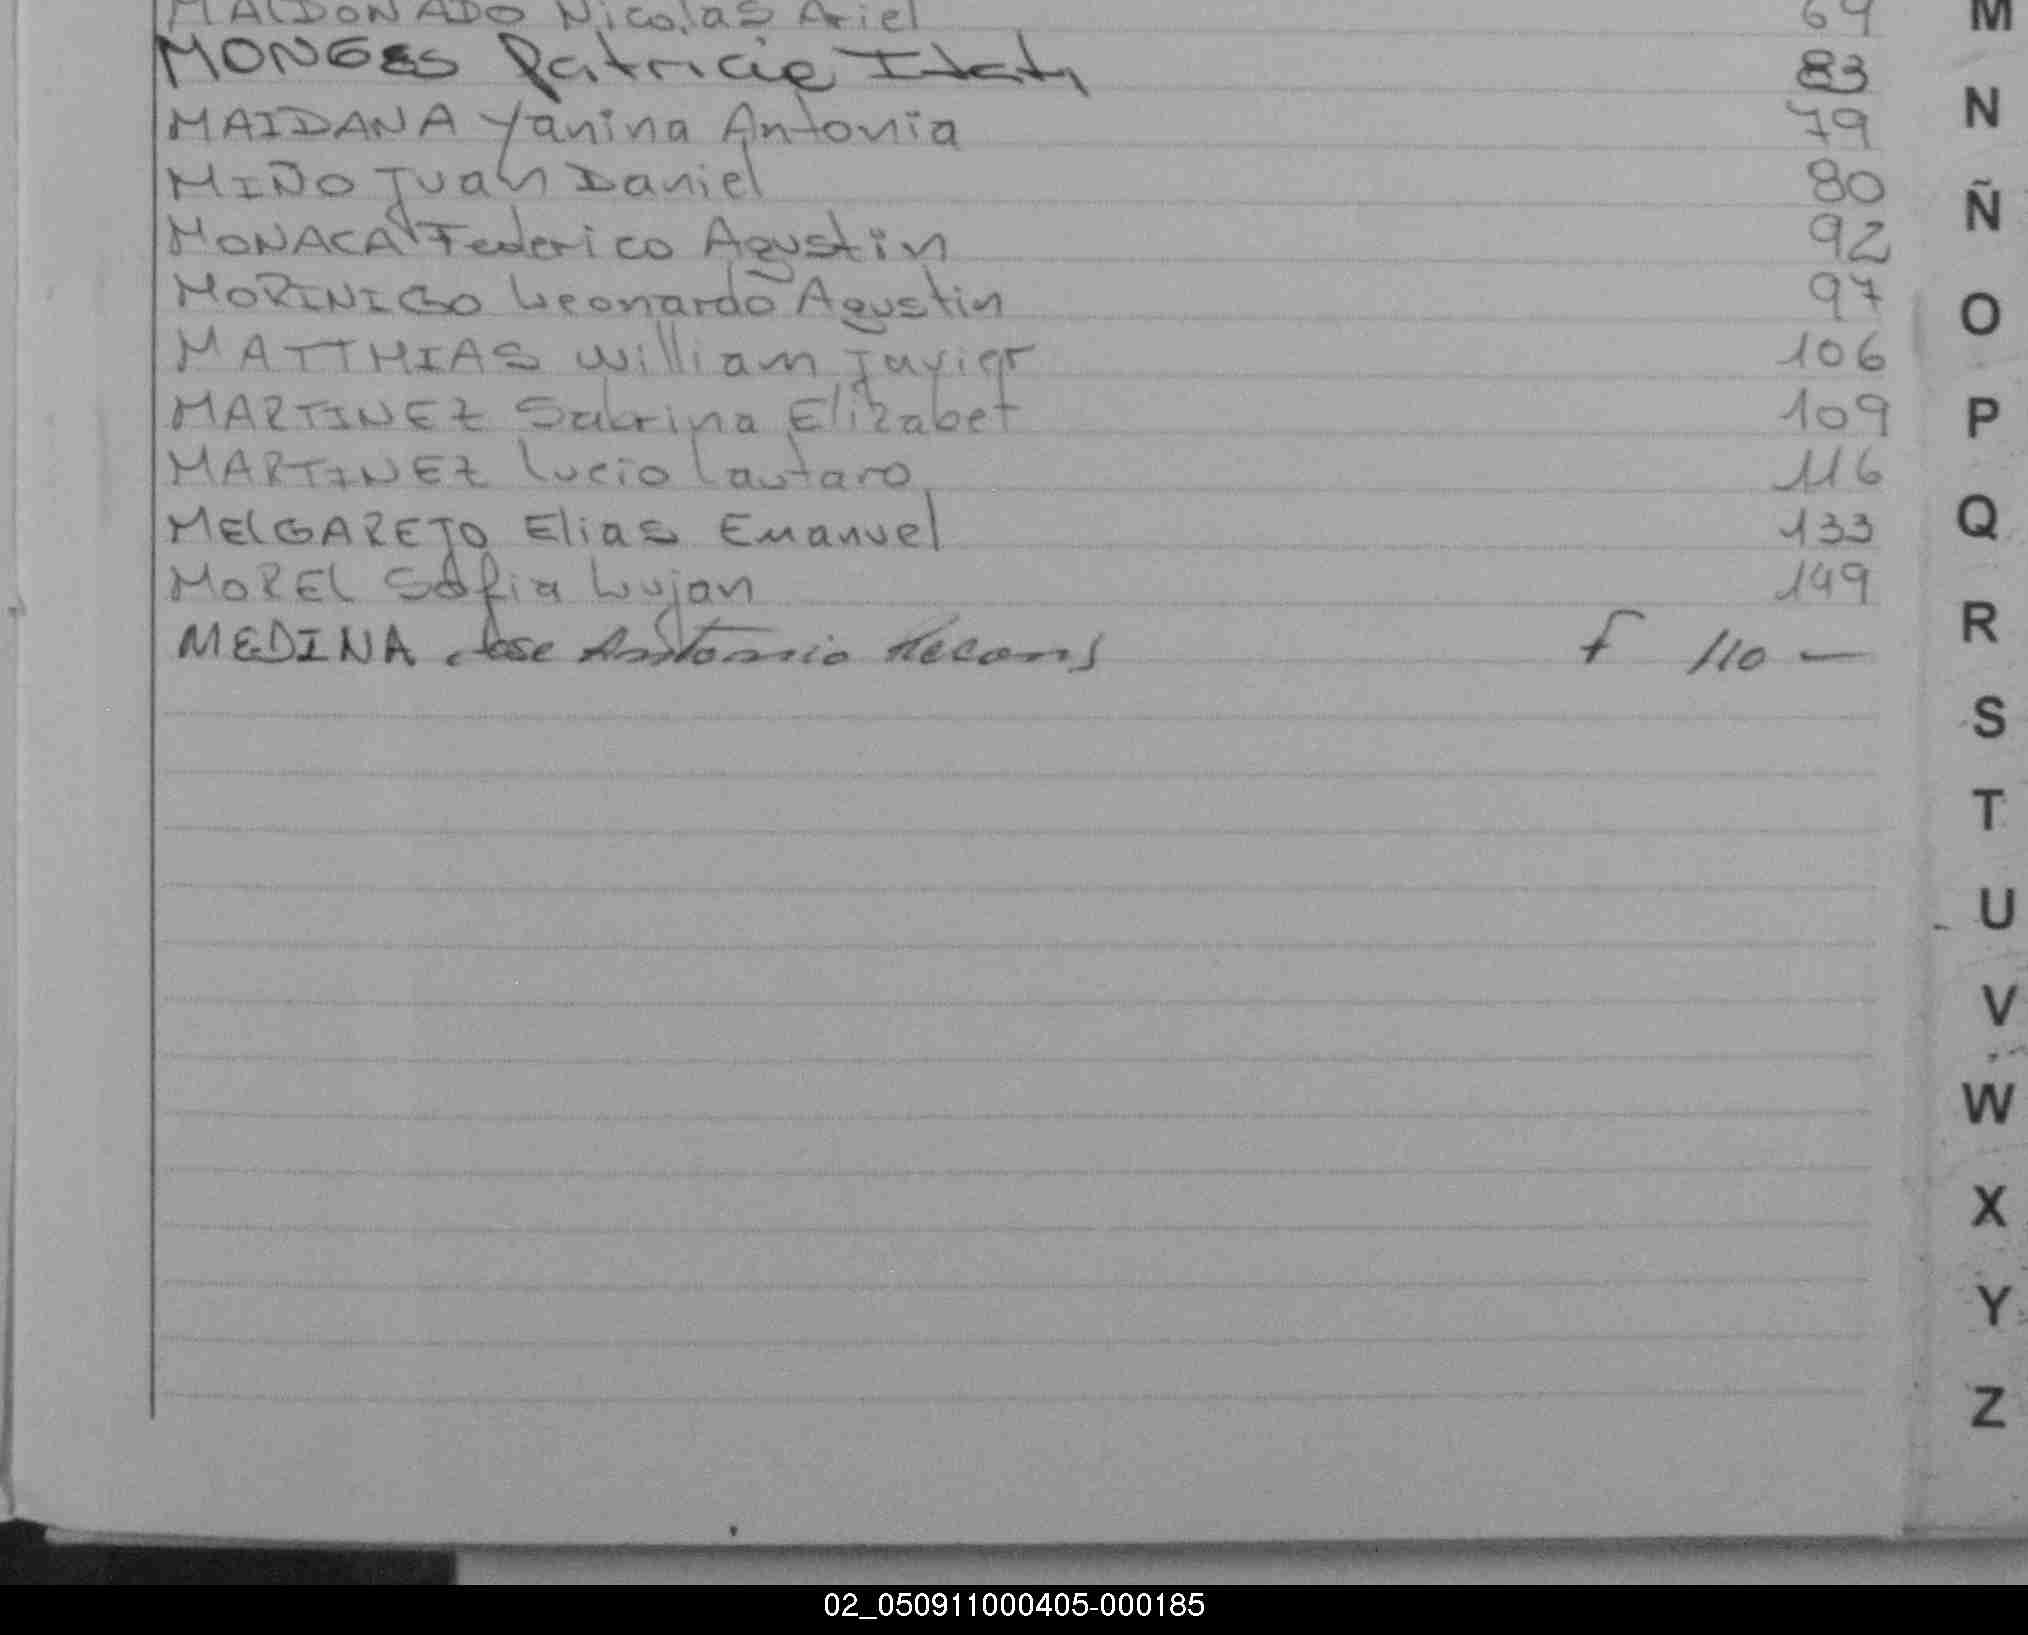 MALDONADO Nicolas Ariel 69
MONGES Patricia Itati 83
MAIDANA Yanina Antonia 79
MIÑO Juan Daniel 80
MONACA Federico Agustin 92
MORINIGO Leonardo Agustin 97
MATTHIAS William Javier 106
MARTINEZ Sabrina Elizabet 109
MARTINEZ Lucio Lautaro 116
MELGAREJO Elias Emanuel 133
MOREL Sofia Lujan 149
MEDINA Jose Antonio f 110 —
M
N
Ñ
O
P
Q
R
S
T
U
V
W
X
Y
Z
02_050911000405-000185